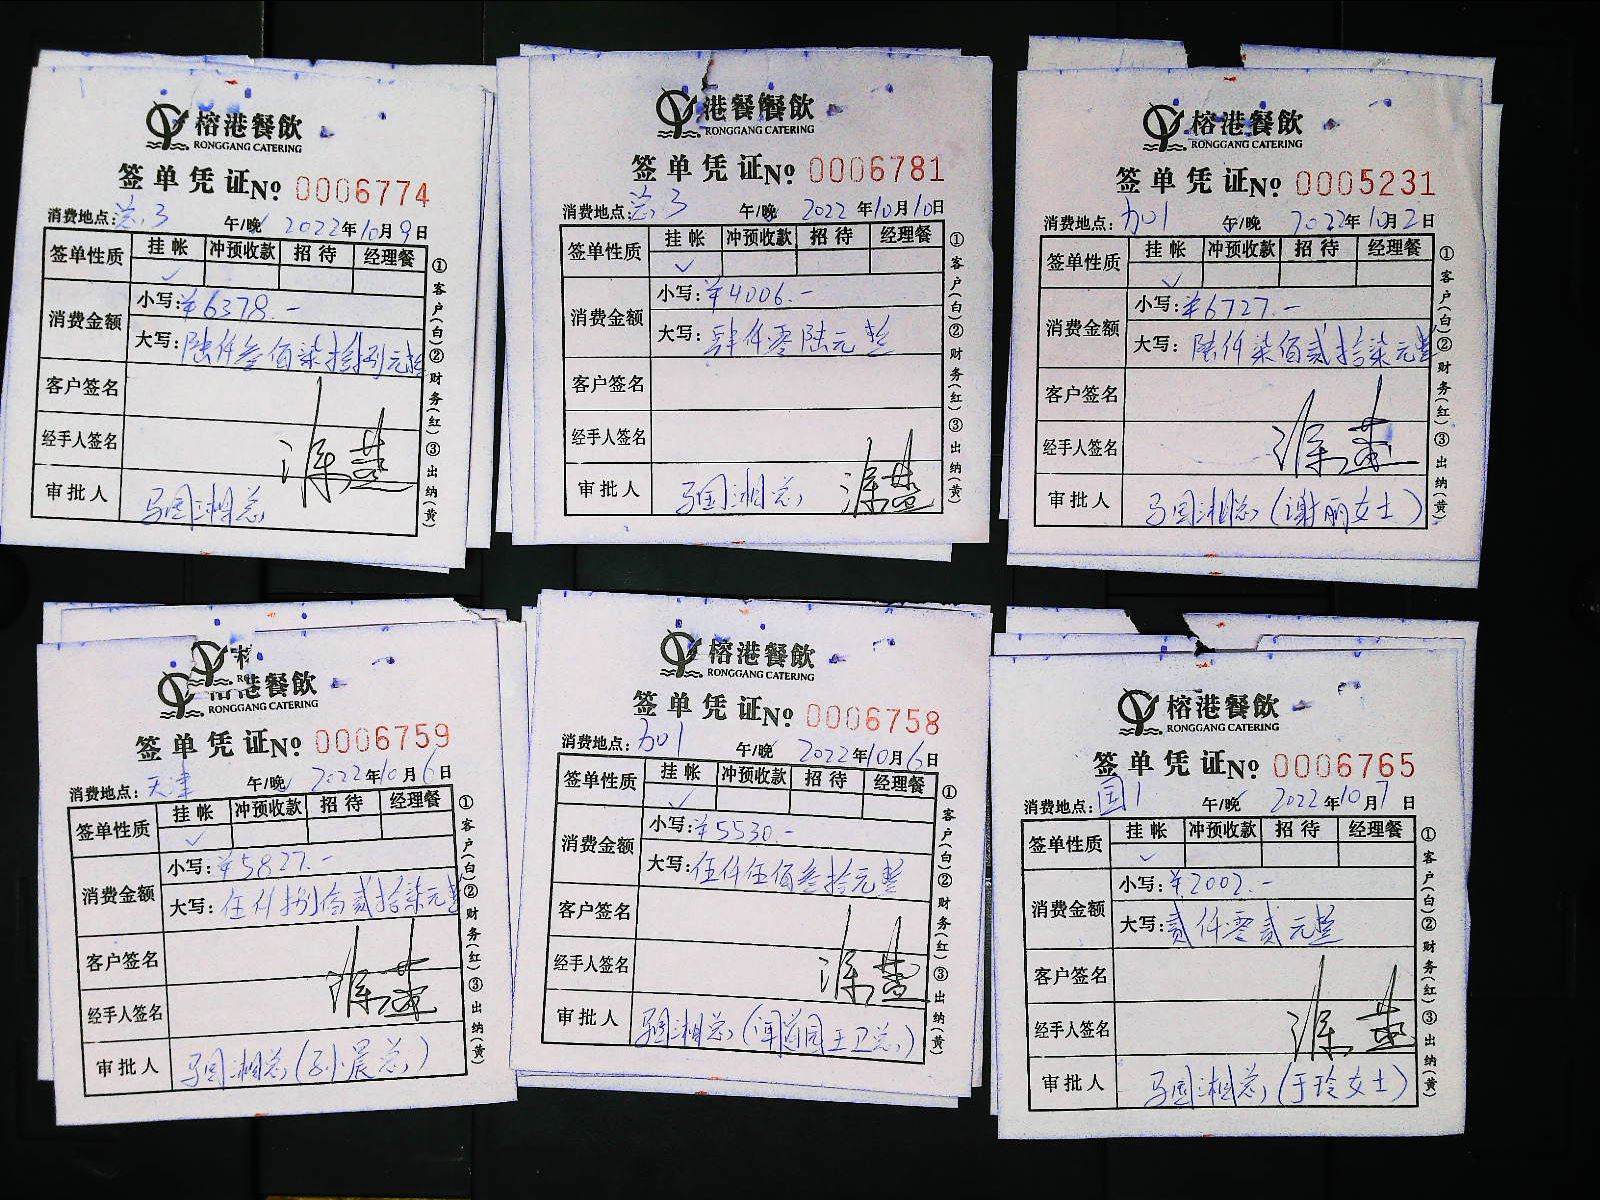 榕港餐飲
RONGGANG CATERING
签单凭证№ 0006774
消费地点:总3 午/晚✓ 2022年10月9日
签单性质 挂帐 冲预收款 招待 经理餐
✓
消费金额 小写:¥6378.-
大写:陆仟叁佰柒拾捌元整
客户签名
经手人签名
审批人 马国湘总
①客户(白)②财务(红)③出纳(黄)
港餐飲
RONGGANG CATERING
签单凭证№ 0006781
消费地点:总3 午/晚 2022年10月10日
签单性质 挂帐 冲预收款 招待 经理餐
✓
消费金额 小写:¥4006.-
大写:肆仟零陆元整
客户签名
经手人签名
审批人 马国湘总
①客户(白)②财务(红)③出纳(黄)
榕港餐飲
RONGGANG CATERING
签单凭证№ 0005231
消费地点: 午/晚 2022年10月2日
签单性质 挂帐 冲预收款 招待 经理餐
✓
消费金额 小写:¥6727.-
大写:陆仟柒佰贰拾柒元整
客户签名
经手人签名
审批人 马国湘总(谢丽女士)
①客户(白)②财务(红)③出纳(黄)
港餐飲
RONGGANG CATERING
签单凭证№ 0006759
消费地点:天津 午/晚✓ 2022年10月6日
签单性质 挂帐 冲预收款 招待 经理餐
✓
消费金额 小写:¥5827.-
大写:伍仟捌佰贰拾柒元整
客户签名
经手人签名
审批人 马国湘总(孙晨总)
①客户(白)②财务(红)③出纳(黄)
榕港餐飲
RONGGANG CATERING
签单凭证№ 0006758
消费地点: 午/晚 2022年10月6日
签单性质 挂帐 冲预收款 招待 经理餐
✓
消费金额 小写:¥5530.-
大写:伍仟伍佰叁拾元整
客户签名
经手人签名
审批人 马国湘总(闻道园王卫总)
①客户(白)②财务(红)③出纳(黄)
榕港餐飲
RONGGANG CATERING
签单凭证№ 0006765
消费地点:国1 午/晚 2022年10月7日
签单性质 挂帐 冲预收款 招待 经理餐
✓
消费金额 小写:¥2002.-
大写:贰仟零贰元整
客户签名
经手人签名
审批人 马国湘总(于玲女士)
①客户(白)②财务(红)③出纳(黄)